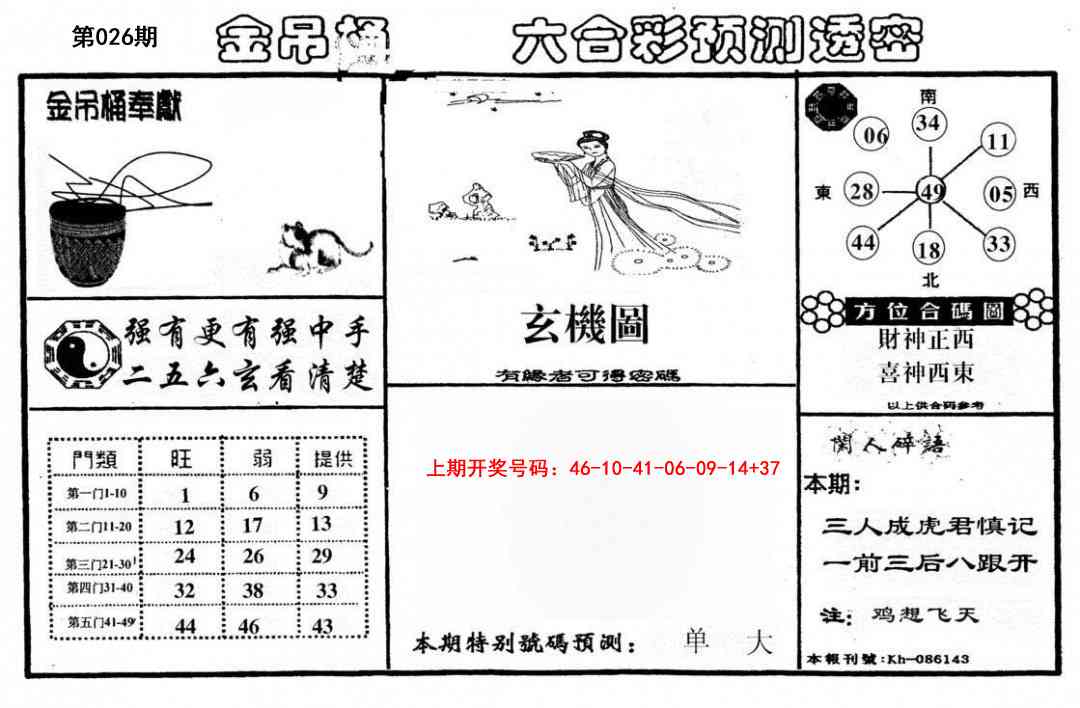 第026期
金吊桶 六合彩预测透密
金吊桶奉獻
强有更有强中手
二五六玄看清楚
門類 旺 弱 提供
第一门1-10 1 6 9
第二门11-20 12 17 13
第三门21-30 24 26 29
第四门31-40 32 38 33
第五门41-49 44 46 43
玄機圖
有緣者可得密碼
上期开奖号码：46-10-41-06-09-14+37
本期特别號碼預测： 单 大
南
06 34 11
東 28 49 05 西
44 18 33
北
方位合碼圖
財神正西
喜神西東
以上供合码参考
閑人碎語
本期：
三人成虎君慎记
一前三后八跟开
注：鸡想飞天
本報刊號:Kh-086143